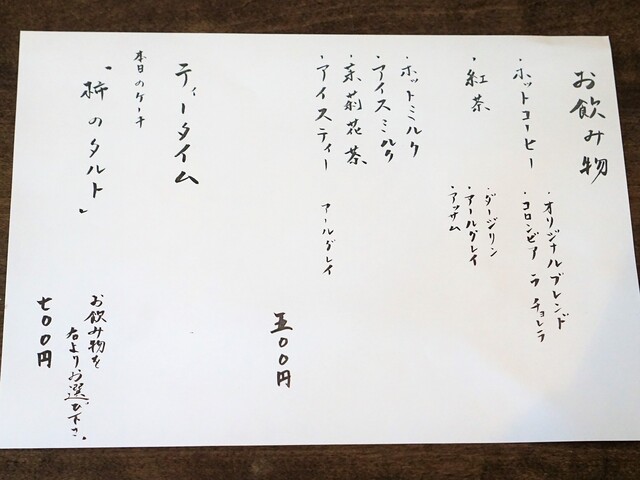 お飲み物
・ホットコーヒー
・オリジナルブレンド
・コロンビア ラ チョレラ
・紅茶
・ダージリン
・アールグレイ
・アッサム
・ホットミルク
・アイスミルク
・茉莉花茶
・アイスティー アールグレイ
五〇〇円
ティータイム
本日のケーキ
「柿のタルト」
お飲み物を
右よりお選び下さい。
七〇〇円